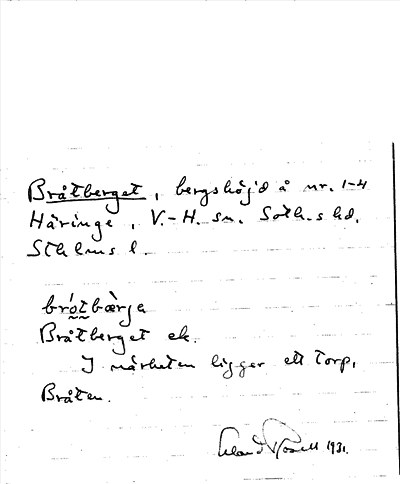 Bråtberget, bergshöjd å nr. 1-4
Häringe, V.-H. sn. Soth.s hd.
Sthlms l.
brótbàrja
Bråtberget ek.
I närheten ligger ett torp,
Bråten.
1931.